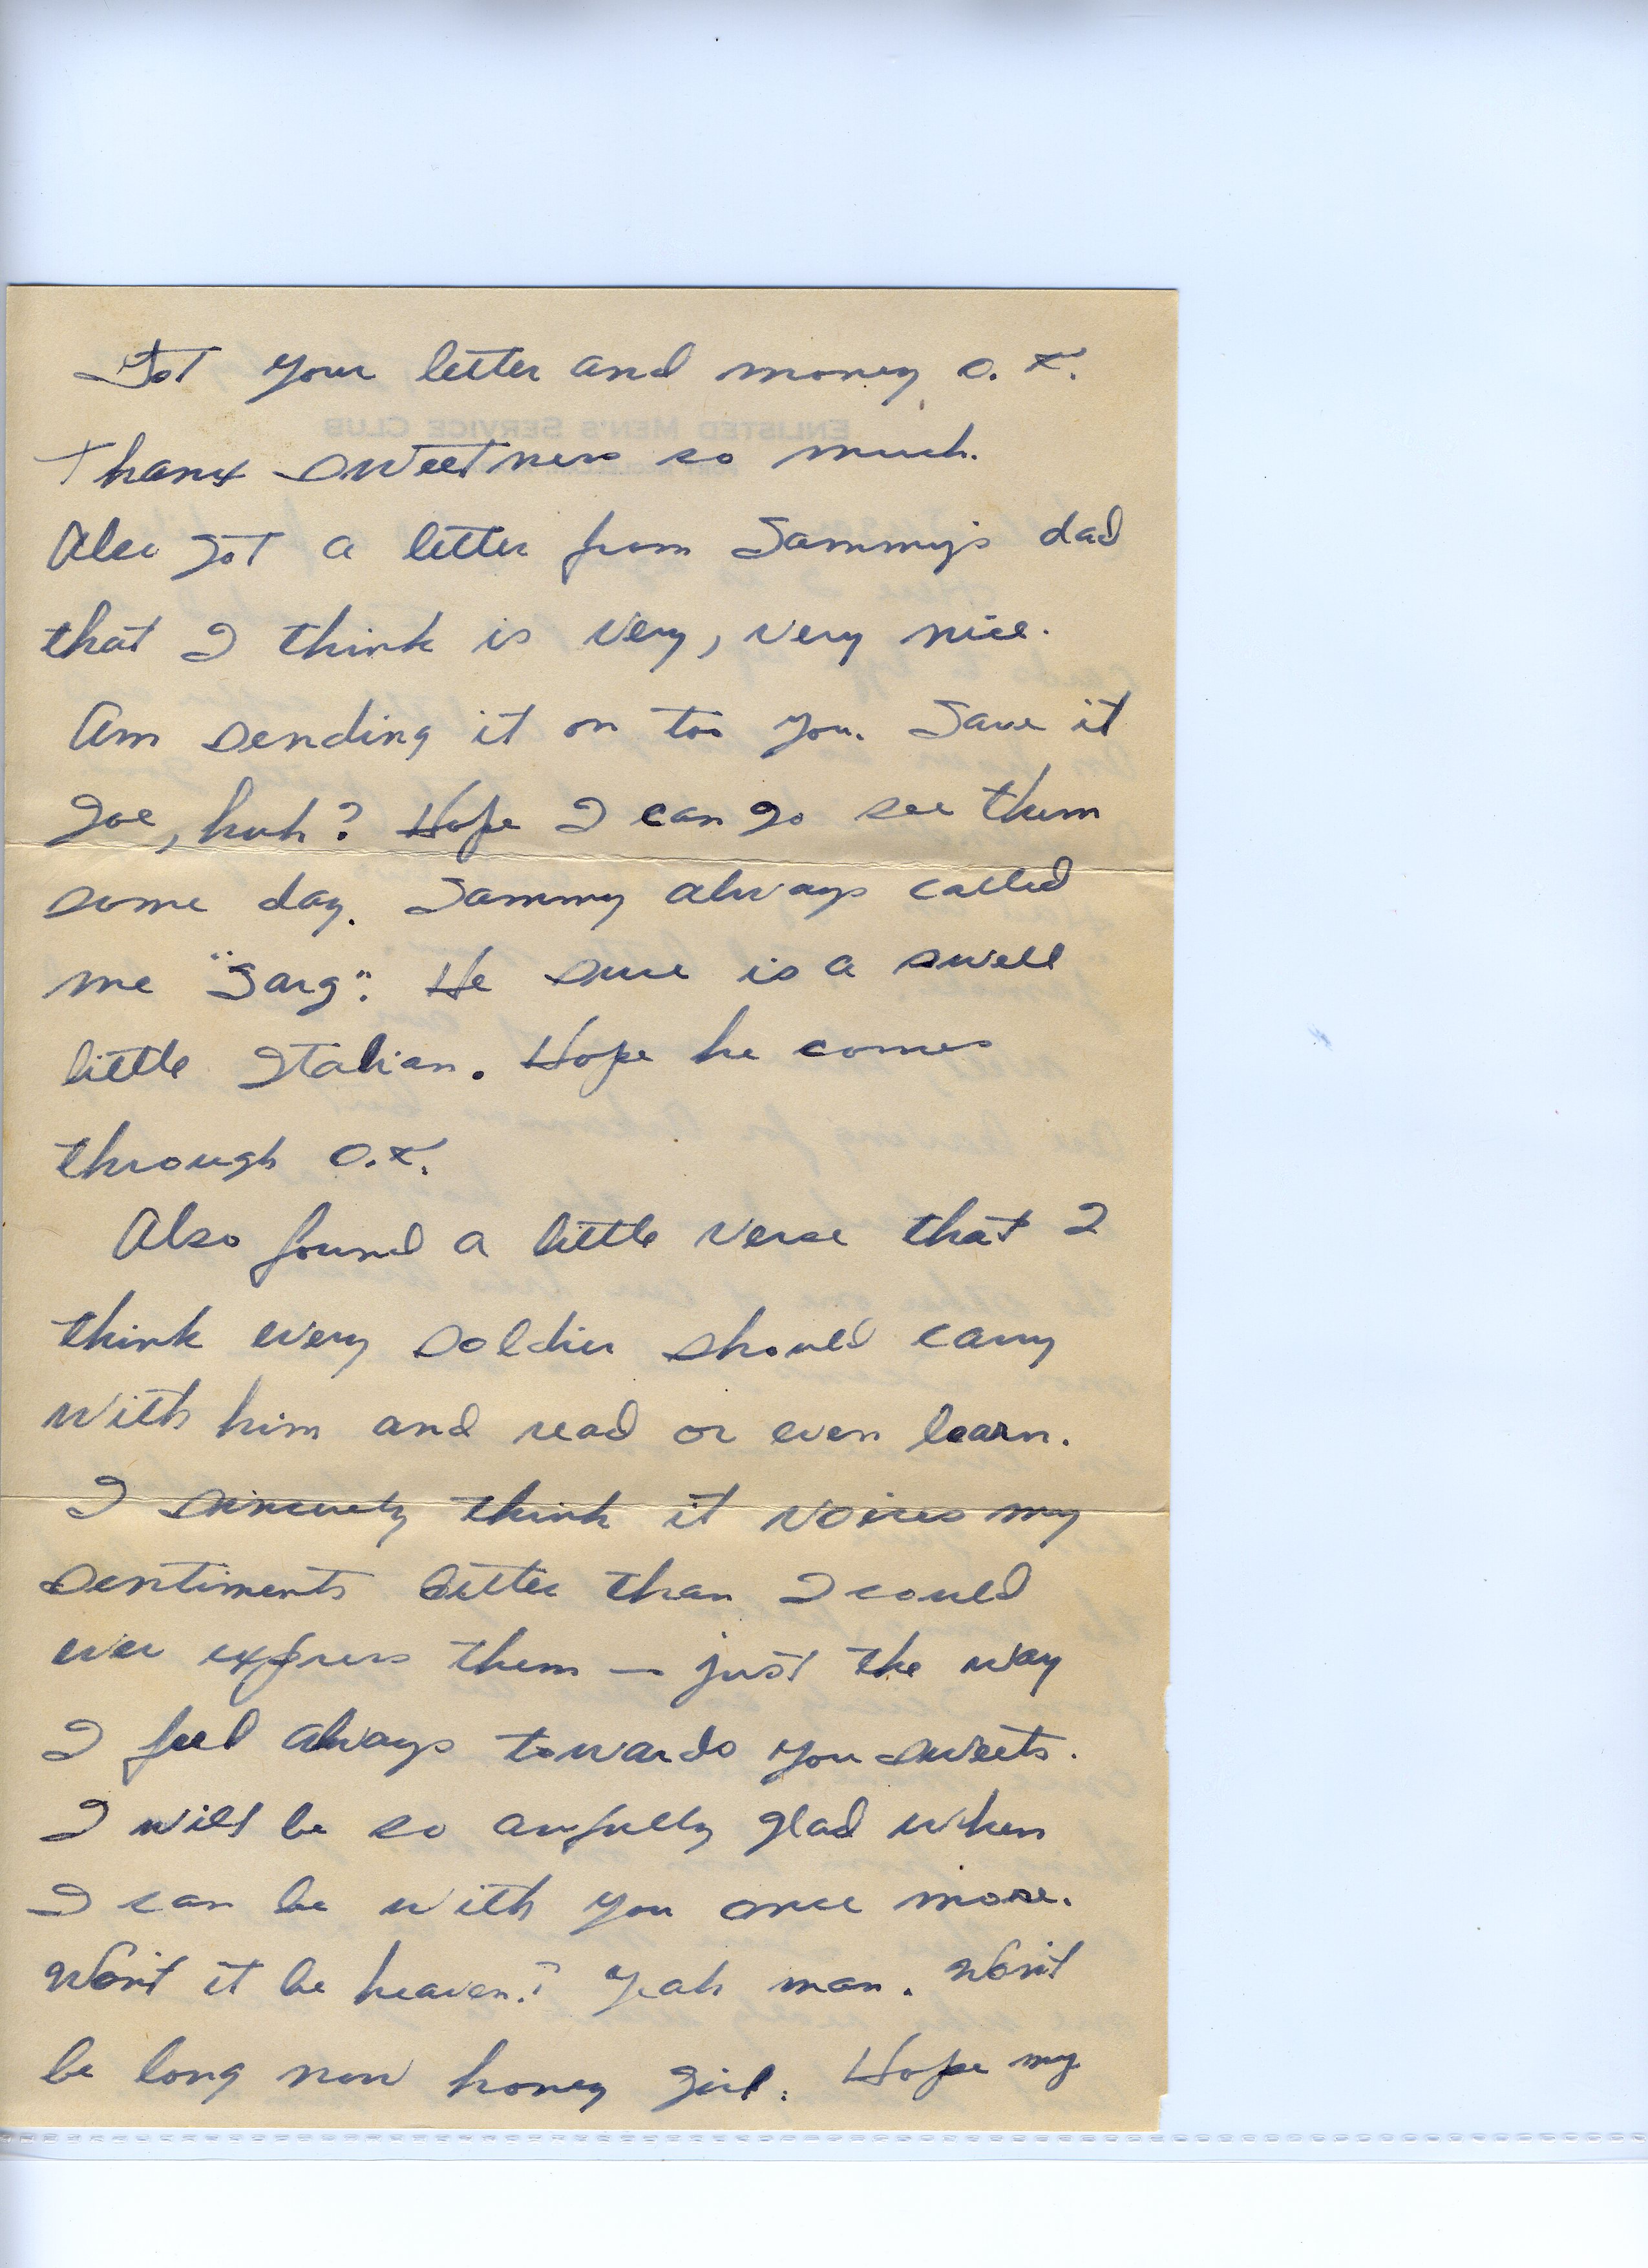 Got your letter and money O.K.
Thanx sweetness so much.
Also got a letter from Sammy's dad
that I think is very, very nice.
Am sending it on too you. Save it
Joe, huh? Hope I can go see them
some day. Sammy always called
me "Sarg". He sure is a swell
little Italian. Hope he comes
through O.K.
Also found a little verse that I
think every soldier should carry
with him and read or even learn.
I sincerely think it voices my
sentiments better than I could
ever express them — just the way
I feel always towards you sweets.
I will be so awfully glad when
I can be with you once more.
Won't it be heaven? Yeah man. Won't
be long now honey girl. Hope my
ENLISTED MEN'S SERVICE CLUB